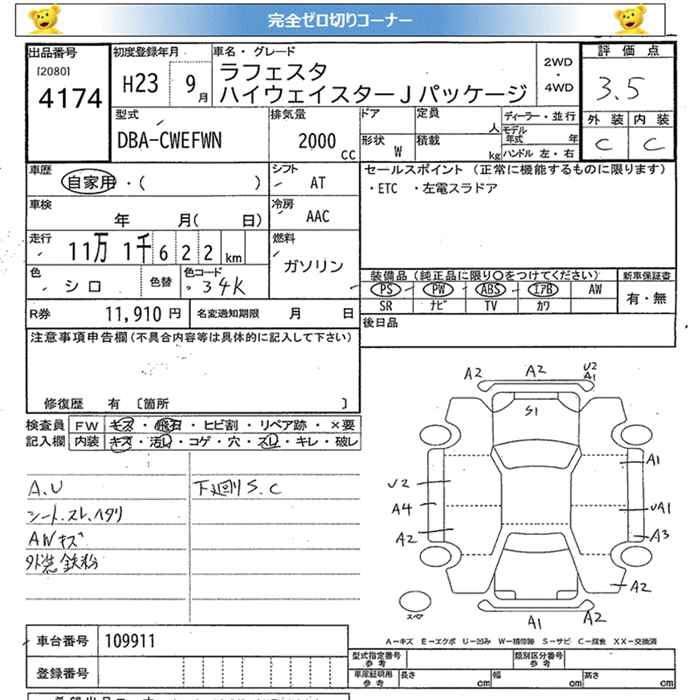 完全ゼロ切りコーナー
出品番号 初度登録年月 車名・グレード 評価点
[2080] 4174 H23 9月 ラフェスタ 2WD・4WD 3.5
ハイウェイスターJパッケージ
型式 排気量 ドア 定員 人 ディーラー・並行 外装 内装
DBA-CWEFWN 2000cc 形状 W 積載 kg モデル年式 年 C C
ハンドル 左・右
車歴 自家用・( ) シフト AT セールスポイント (正常に機能するものに限ります)
・ETC ・左電スラドア
車検 年 月( 日) 冷房 AAC
走行 11万1千622km 燃料 ガソリン
色 シロ 色替 色コード 34K
装備品(純正品に限り○をつけてください) 新車保証書
PS PW ABS エアB AW 有・無
SR ナビ TV カワ
R券 11,910円 名変通知期限 月 日 後日品
注意事項申告欄(不具合内容等は具体的に記入して下さい)
修復歴 有 〔箇所 〕
検査員記入欄 FW キズ・飛石・ヒビ割・リペア跡・×要
内装 キズ・汚れ・コゲ・穴・スレ・キレ・破レ
A.U 下廻りS.C
シート.スレ.ヘタリ
AWキズ
外装鉄粉
A2 A2 U2 A1
S1
A1
U2
A4 UA1
A2 A3
A2
A1 A2
スペア
A-キズ E-エクボ U-凹み W-補修跡 S-サビ C-腐食 XX-交換済
車台番号 109911
登録番号
型式指定番号 参考 類別区分番号 参考
車庫証明用 参考 長さ cm 幅 cm 高さ cm